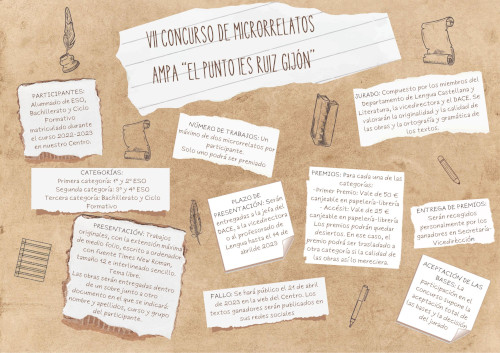 VII CONCURSO DE MICRORRELATOS
AMPA "EL PUNTO IES RUIZ GIJÓN"
PARTICIPANTES:
Alumnado de ESO,
Bachillerato y Ciclo
Formativo
matriculado durante
el curso 2022-2023
en nuestro Centro.
NÚMERO DE TRABAJOS: Un
máximo de dos microrrelatos por
participante.
Solo uno podrá ser premiado.
JURADO: Compuesto por los miembros del
Departamento de Lengua Castellana y
Literatura, la vicedirectora y el DACE. Se
valorarán la originalidad y la calidad de
las obras y la ortografía y gramática de
los textos.
CATEGORÍAS:
Primera categoría: 1º y 2º ESO
Segunda categoría: 3º y 4º ESO
Tercera categoría: Bachillerato y Ciclo
Formativo
PLAZO DE
PRESENTACIÓN: Serán
entregados a la jefa del
DACE, a la vicedirectora
o al profesorado de
Lengua hasta el 14 de
abril de 2023
PREMIOS: Para cada una de las
categorías:
-Primer Premio: Vale de 50 €
canjeable en papelería-librería
- Accésit: Vale de 25 €
canjeable en papelería-librería
Los premios podrán quedar
desiertos. En este caso, el
premio podrá ser trasladado a
otra categoría si la calidad de
las obras así lo mereciera.
ENTREGA DE PREMIOS:
Serán recogidos
personalmente por los
ganadores en Secretaría/
Vicedirección
PRESENTACIÓN: Trabajos
originales, con la extensión máxima
de medio folio, escrito a ordenador
con fuente Times New Roman,
tamaño 12 e interlineado sencillo.
Tema libre.
Las obras serán entregadas dentro
de un sobre junto a otro
documento en el que se indicará,
nombre y apellidos, curso y grupo
del participante
FALLO: Se hará público el 21 de abril
de 2023 en la web del Centro. Los
textos ganadores serán publicados en
sus redes sociales
ACEPTACIÓN DE
LAS BASES: La
participación en el
concurso supone la
aceptación total de
las bases y la decisión
del jurado